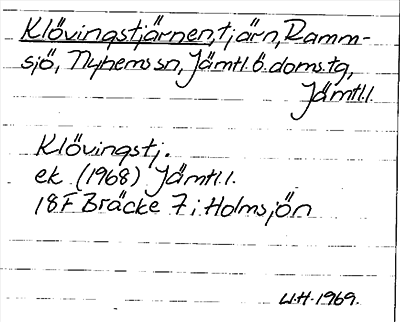 Klövingstjärnen, tjärn, Ramm-
sjö, Nyhems sn, Jämtl. ö. doms.tg,
Jämtl.l.
Klövingstj.
ek (1968) Jämtl.l.
18F Bräcke 7 i Holmsjön
W.H. 1969.